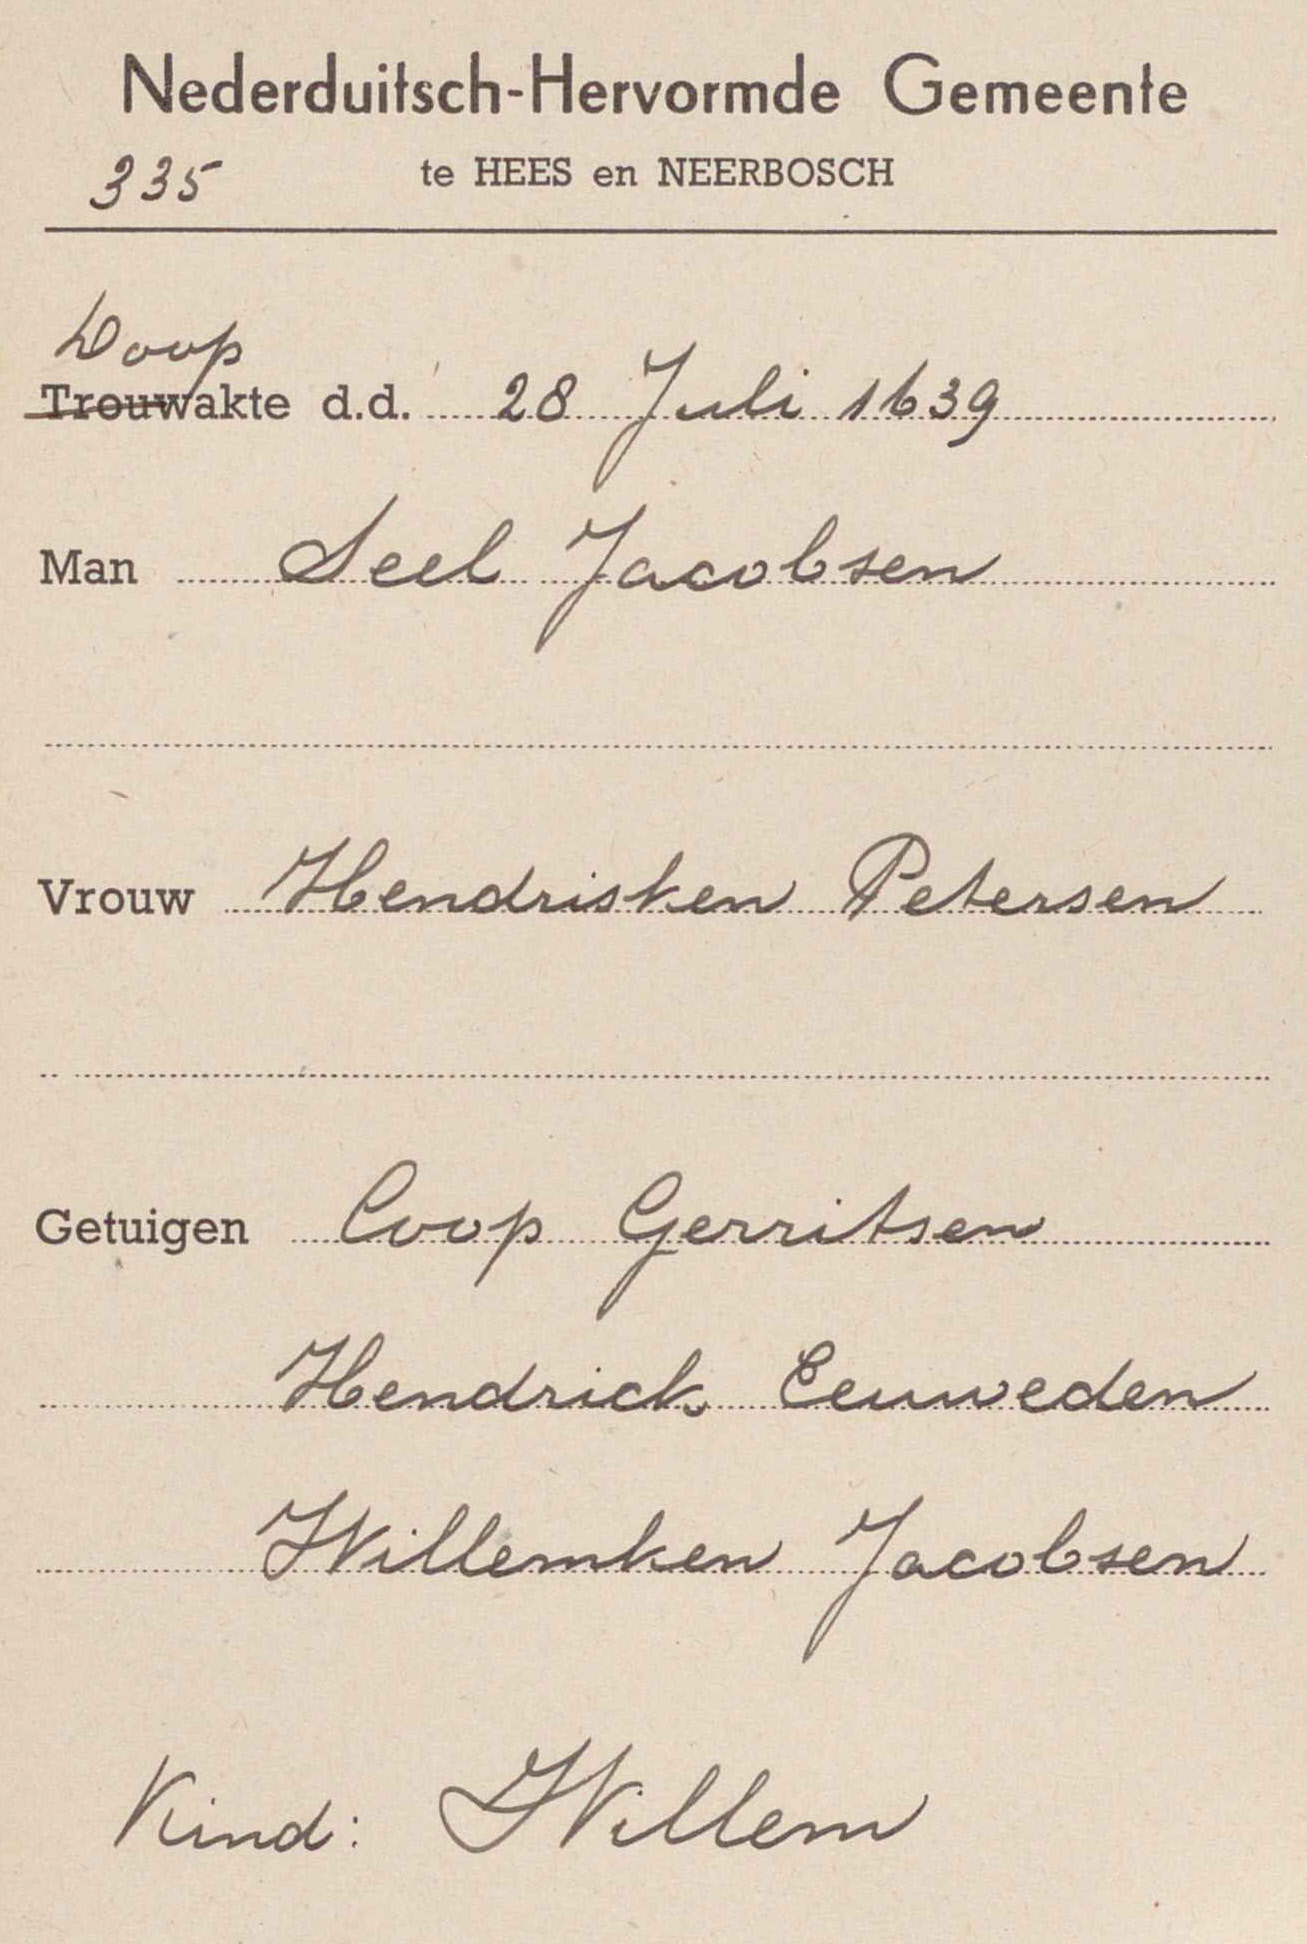 Nederduitsch-Hervormde Gemeente
335 te HEES en NEERBOSCH
Doop
Trouwakte d.d. 28 Juli 1639
Man Seel Jacobsen
Vrouw Hendrisken Petersen
Getuigen Coop Gerritsen
Hendrick Eeuweden
Willemken Jacobsen
Kind: Willem